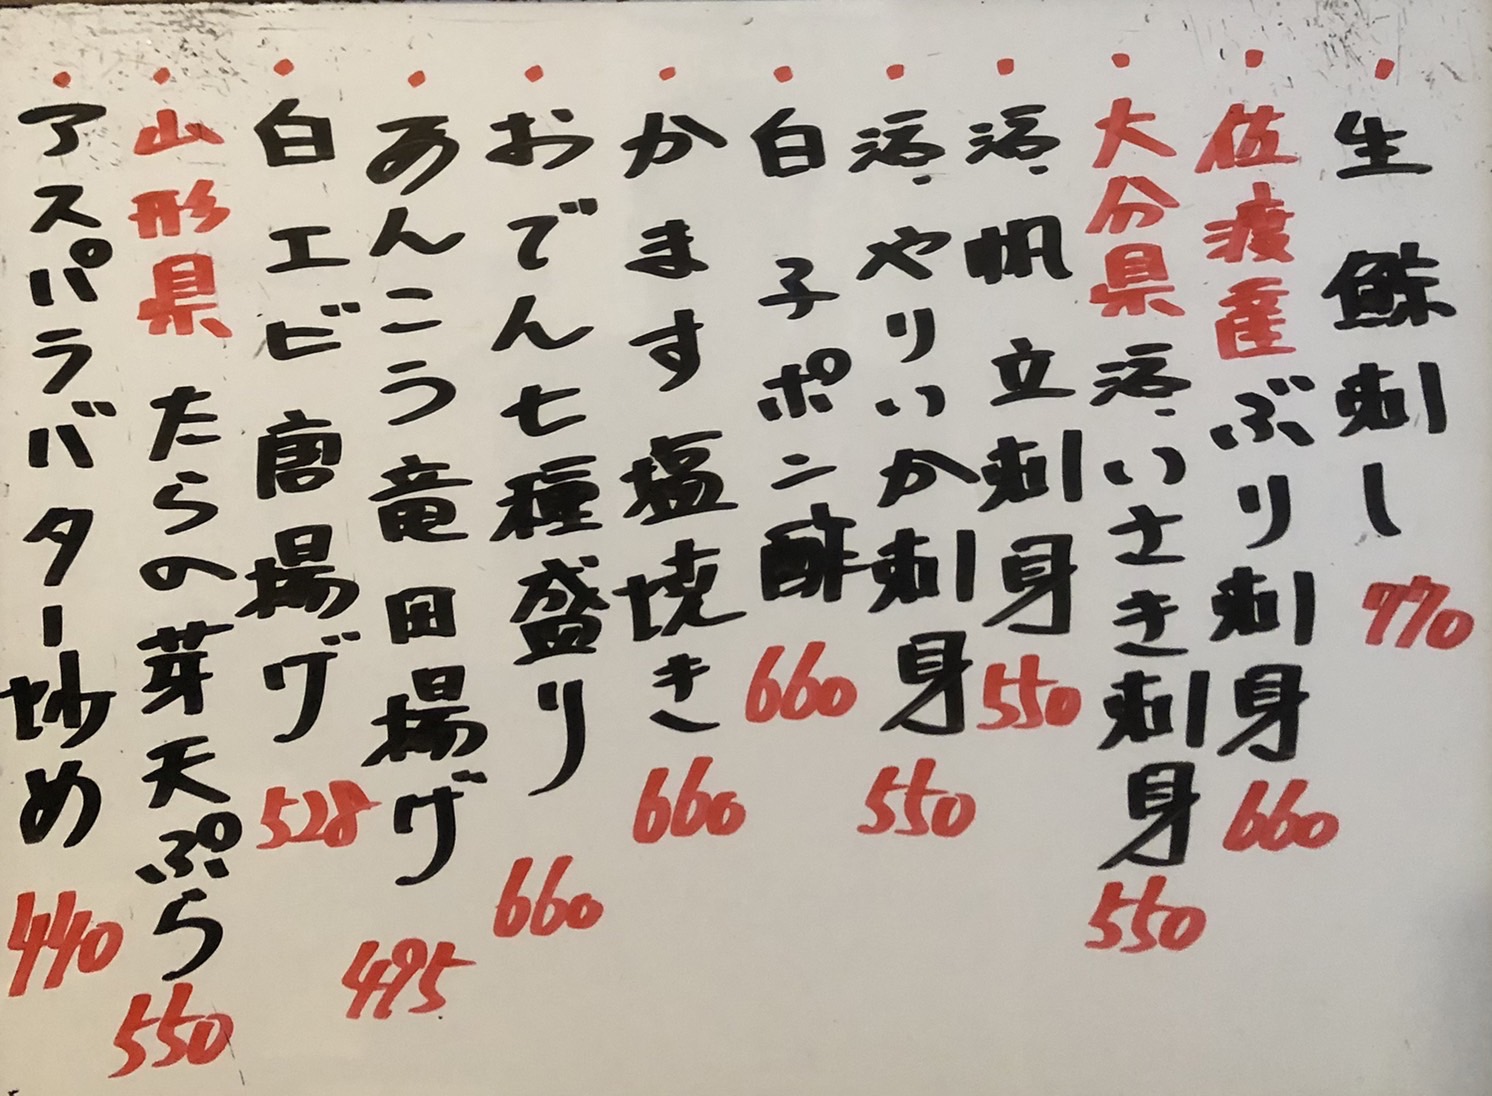 ・生鯨刺し 770
・佐渡産ぶり刺身 660
・大分県活いさき刺身 550
・活帆立刺身 550
・活やりいか刺身 550
・白子ポン酢 660
・かます塩焼き 660
・おでん七種盛り 660
・あんこう竜田揚げ 495
・白エビ唐揚げ 528
・山形県たらの芽天ぷら 550
・アスパラバター炒め 440